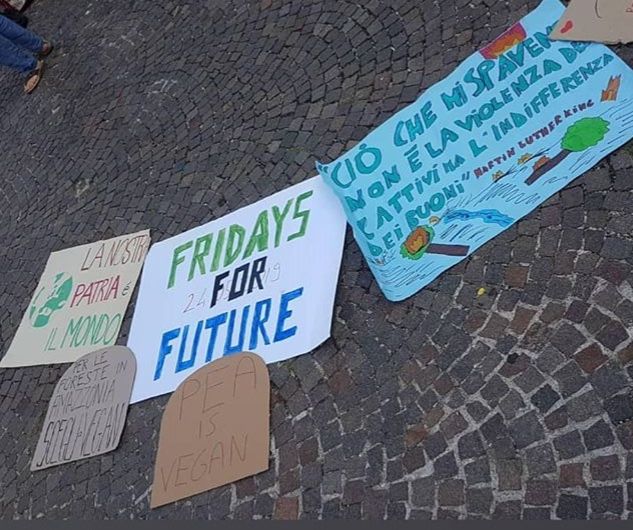 LA NOSTR
PATRIA è
IL MONDO
FRIDAYS
FOR
FUTURE
"CIÒ CHE MI SPAVEN
NON È LA VIOLENZA DE
CATTIVI MA L'INDIFFERENZA
DEI BUONI"
MARTIN LUTHER KING
PER LE
FORESTE IN
AMAZZONIA
SCEGLI VEGAN
PEA
IS
VEGAN